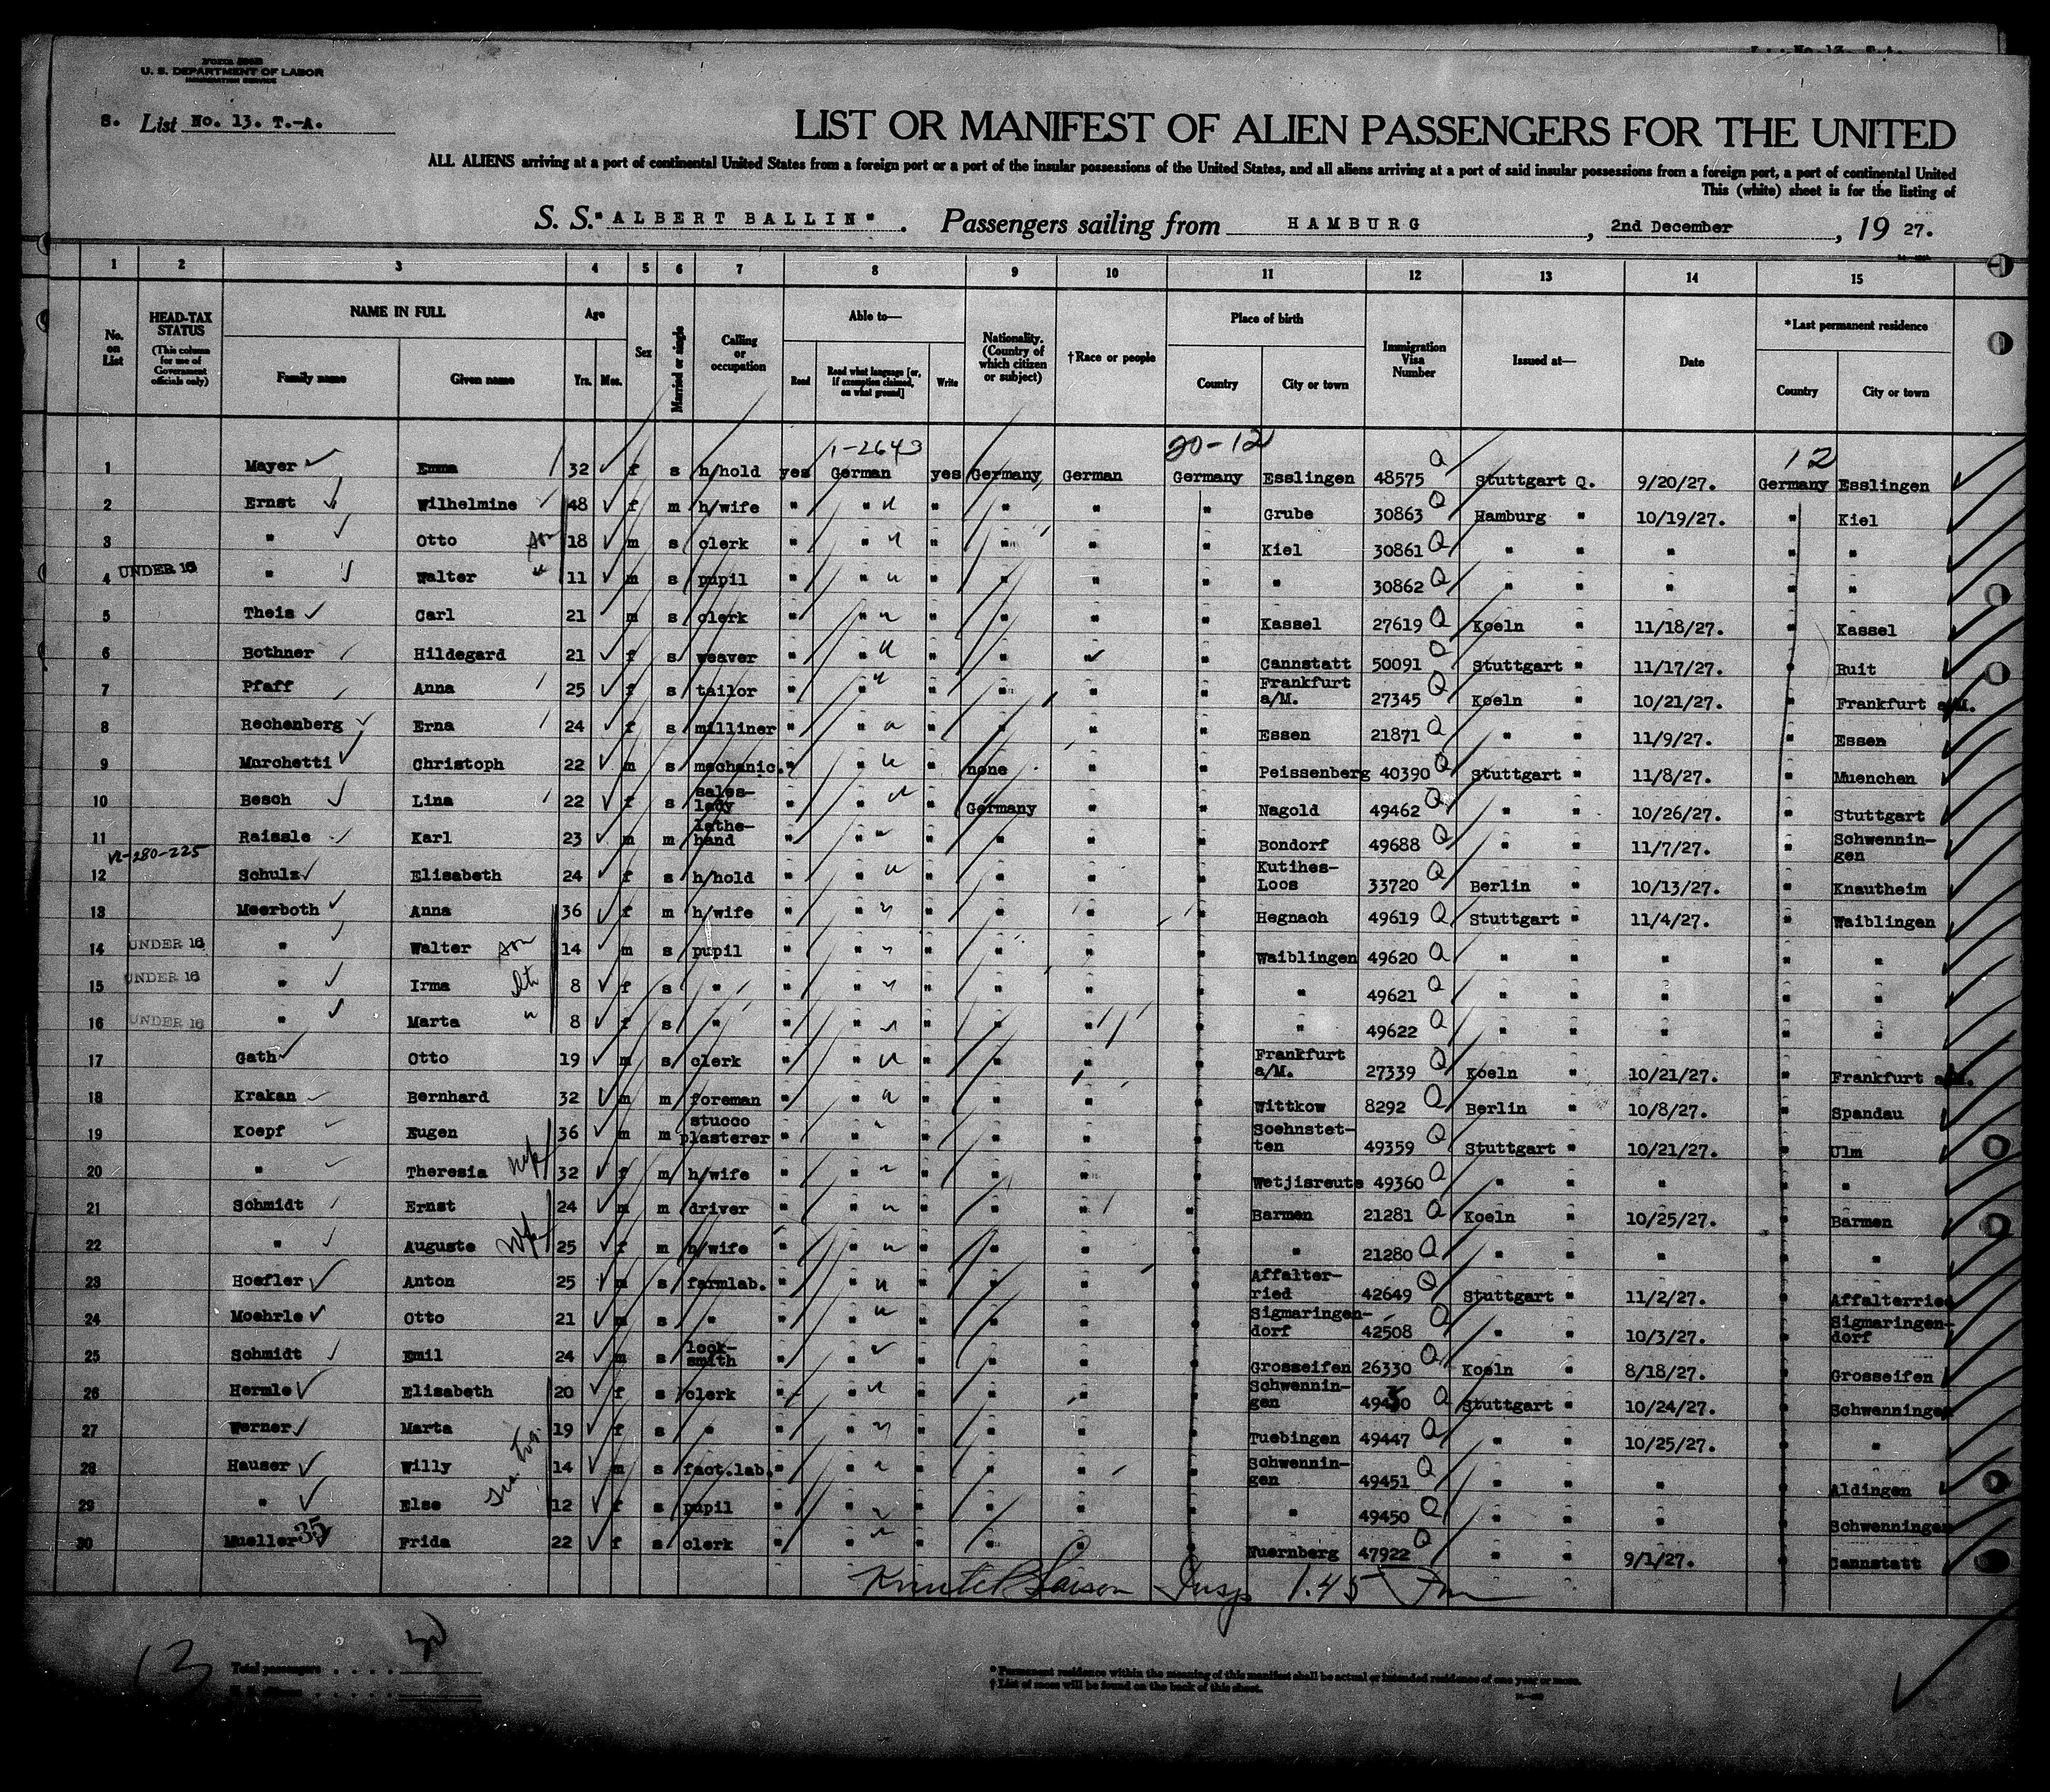 L... No. 13. T.-A.
U. S. DEPARTMENT OF LABOR
IMMIGRATION SERVICE
8. List No. 13. T.-A.
LIST OR MANIFEST OF ALIEN PASSENGERS FOR THE UNITED
ALL ALIENS arriving at a port of continental United States from a foreign port or a port of the insular possessions of the United States, and all aliens arriving at a port of said insular possessions from a foreign port, a port of continental United
This (white) sheet is for the listing of
S. S. "ALBERT BALLIN". Passengers sailing from HAMBURG, 2nd December, 19 27.
1 2 3 4 5 6 7 8 9 10 11 12 13 14 15
No. on List
HEAD-TAX STATUS (This column for use of Government officials only)
NAME IN FULL Family name Given name
Age Yrs. Mos.
Sex
Married or single
Calling or occupation
Able to— Read Read what language [or, if exemption claimed, on what ground] Write
Nationality. (Country of which citizen or subject)
†Race or people
Place of birth Country City or town
Immigration Visa Number
Issued at—
Date
*Last permanent residence Country City or town
1-2643 20-12 12
1 Mayer Emma 32 f s h/hold yes German yes Germany German Germany Esslingen 48575 Q Stuttgart Q. 9/20/27. Germany Esslingen
2 Ernst Wilhelmine 48 f m h/wife " " " " " " Grube 30863 Q Hamburg " 10/19/27. " Kiel
3 " Otto son 18 m s clerk " " " " " " Kiel 30861 Q " " " " "
4 UNDER 16 " Walter " 11 m s pupil " " " " " " " 30862 Q " " " " "
5 Theis Carl 21 m s clerk " " " " " " Kassel 27619 Q Koeln " 11/18/27. " Kassel
6 Bothner Hildegard 21 f s weaver " " " " " " Cannstatt 50091 Q Stuttgart " 11/17/27. " Ruit
7 Pfaff Anna 25 f s tailor " " " " " " Frankfurt a/M. 27345 Q Koeln " 10/21/27. " Frankfurt a/M.
8 Rechenberg Erna 24 f s milliner " " " " " " Essen 21871 Q " " 11/9/27. " Essen
9 Marchetti Christoph 22 m s mechanic. " " " none " " Peissenberg 40390 Q Stuttgart " 11/8/27. " Muenchen
10 Besch Lina 22 f s sales-lady " " " Germany " " Nagold 49462 Q " " 10/26/27. " Stuttgart
11 Raissle Karl 23 m m lathe-hand " " " " " " Bondorf 49688 Q " " 11/7/27. " Schwennin-gen
12 Schulz Elisabeth 24 f s h/hold " " " " " " Kutihes-Loos 33720 Q Berlin " 10/13/27. " Knautheim
13 Meerboth Anna 36 f m h/wife " " " " " " Hegnach 49619 Q Stuttgart " 11/4/27. " Waiblingen
14 UNDER 16 " Walter son 14 m s pupil " " " " " " Waiblingen 49620 Q " " " " "
15 UNDER 16 " Irma 8 f s " " " " " " " " 49621 Q " " " " "
16 UNDER 16 " Marta " 8 f s " " " " " " " " 49622 Q " " " " "
17 Gath Otto 19 m s clerk " " " " " " Frankfurt a/M. 27339 Q Koeln " 10/21/27. " Frankfurt a/M.
18 Krakan Bernhard 32 m m foreman " " " " " " Wittkow 8292 Q Berlin " 10/8/27. " Spandau
19 Koepf Eugen 36 m m stucco plasterer " " " " " " Soehnstet-ten 49359 Q Stuttgart " 10/21/27. " Ulm
20 " Theresia wife 32 f m h/wife " " " " " " Wetjisreute 49360 Q " " " " "
21 Schmidt Ernst 24 m m driver " " " " " " Barmen 21281 Q Koeln " 10/25/27. " Barmen
22 " Auguste wife 25 f m h/wife " " " " " " " 21280 Q " " " " "
23 Hoefler Anton 25 m s farmlab. " " " " " " Affalter-ried 42649 Q Stuttgart " 11/2/27. " Affalterried
24 Moehrle Otto 21 m s " " " " " " " Sigmaringen-dorf 42508 Q " " 10/3/27. " Sigmaringen-dorf
25 Schmidt Emil 24 m s lock-smith " " " " " " Grosseifen 26330 Q Koeln " 8/18/27. " Grosseifen
26 Hermle Elisabeth 20 f s clerk " " " " " " Schwennin-gen Q Stuttgart " 10/24/27. " Schwenningen
27 Werner Marta 19 f s " " " " " " " Tuebingen 49447 Q " " 10/25/27. " "
28 Hauser Willy 14 m s fact.lab. " " " " " " Schwennin-gen 49451 Q " " " " Aldingen
29 " Else 12 f s pupil " " " " " " " 49450 Q " " " " Schwenningen
30 Mueller 35 Frida 22 f s clerk " " " " " " Nuernberg 47922 Q " " 9/1/27. " Cannstatt
Insp 1.45 Pm
13 Total passengers . . . . . 30
* Permanent residence within the meaning of this manifest shall be actual or intended residence of one year or more.
† List of races will be found on the back of this sheet.